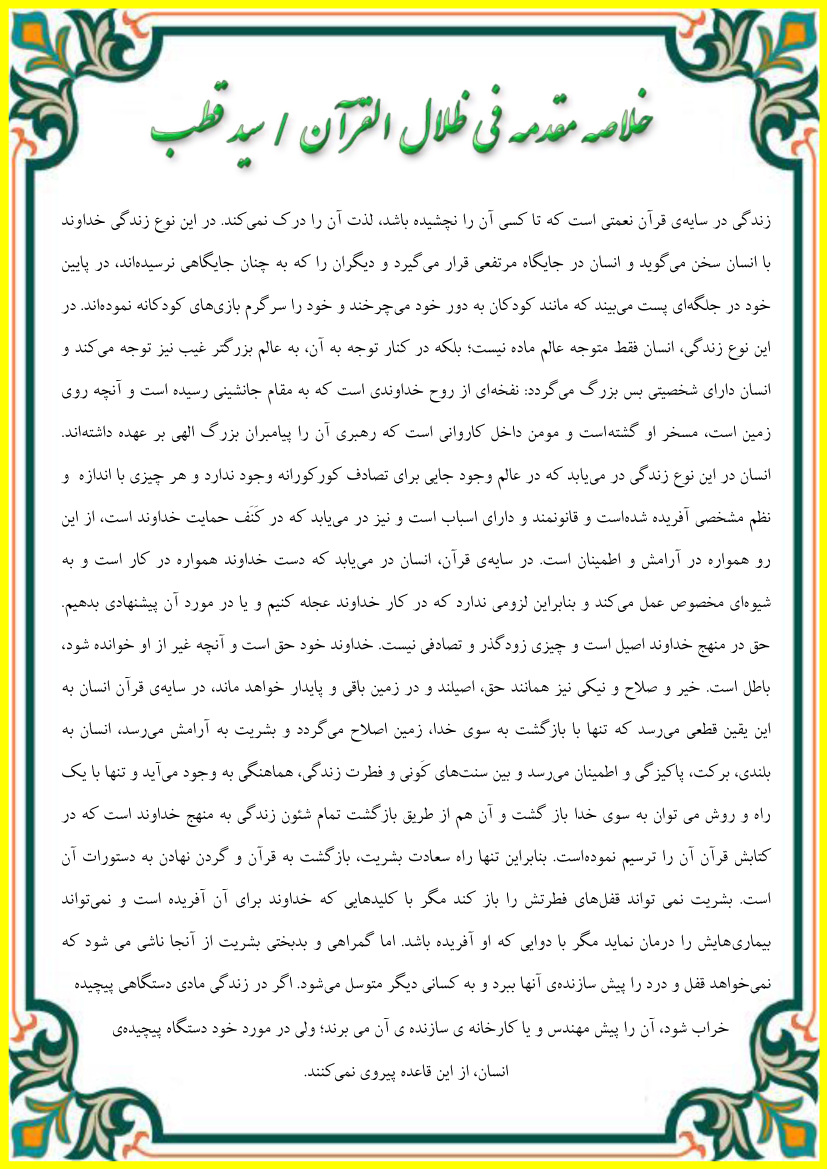 خلاصه مقدمه فی ظلال القرآن / سید قطب
زندگی در سایه‌ی قرآن نعمتی است که تا کسی آن را نچشیده باشد، لذت آن را درک نمی‌کند. در این نوع زندگی خداوند
با انسان سخن می‌گوید و انسان در جایگاه مرتفعی قرار می‌گیرد و دیگران را که به چنان جایگاهی نرسیده‌اند، در پایین
خود در جلگه‌ای پست می‌بیند که مانند کودکان به دور خود می‌چرخند و خود را سرگرم بازی‌های کودکانه نموده‌اند. در
این نوع زندگی، انسان فقط متوجه عالم ماده نیست؛ بلکه در کنار توجه به آن، به عالم بزرگتر غیب نیز توجه می‌کند و
انسان دارای شخصیتی بس بزرگ می‌گردد: نفخه‌ای از روح خداوندی است که به مقام جانشینی رسیده است و آنچه روی
زمین است، مسخر او گشته‌است و مومن داخل کاروانی است که رهبری آن را پیامبران بزرگ الهی بر عهده داشته‌اند.
انسان در این نوع زندگی در می‌یابد که در عالم وجود جایی برای تصادف کورکورانه وجود ندارد و هر چیزی با اندازه و
نظم مشخصی آفریده شده‌است و قانونمند و دارای اسباب است و نیز در می‌یابد که در کَنَف حمایت خداوند است، از این
رو همواره در آرامش و اطمینان است. در سایه‌ی قرآن، انسان در می‌یابد که دست خداوند همواره در کار است و به
شیوه‌ای مخصوص عمل می‌کند و بنابراین لزومی ندارد که در کار خداوند عجله کنیم و یا در مورد آن پیشنهادی بدهیم.
حق در منهج خداوند اصیل است و چیزی زودگذر و تصادفی نیست. خداوند خود حق است و آنچه غیر از او خوانده شود،
باطل است. خیر و صلاح و نیکی نیز همانند حق، اصیلند و در زمین باقی و پایدار خواهد ماند، در سایه‌ی قرآن انسان به
این یقین قطعی می‌رسد که تنها با بازگشت به سوی خدا، زمین اصلاح می‌گردد و بشریت به آرامش می‌رسد، انسان به
بلندی، برکت، پاکیزگی و اطمینان می‌رسد و بین سنت‌های کَونی و فطرت زندگی، هماهنگی به وجود می‌آید و تنها با یک
راه و روش می توان به سوی خدا باز گشت و آن هم از طریق بازگشت تمام شئون زندگی به منهج خداوند است که در
کتابش قرآن آن را ترسیم نموده‌است. بنابراین تنها راه سعادت بشریت، بازگشت به قرآن و گردن نهادن به دستورات آن
است. بشریت نمی تواند قفل‌های فطرتش را باز کند مگر با کلیدهایی که خداوند برای آن آفریده است و نمی‌تواند
بیماری‌هایش را درمان نماید مگر با دوایی که او آفریده باشد. اما گمراهی و بدبختی بشریت از آنجا ناشی می شود که
نمی‌خواهد قفل و درد را پیش سازنده‌ی آنها ببرد و به کسانی دیگر متوسل می‌شود. اگر در زندگی مادی دستگاهی پیچیده
خراب شود، آن را پیش مهندس و یا کارخانه ی سازنده ی آن می برند؛ ولی در مورد خود دستگاه پیچیده‌ی
انسان، از این قاعده پیروی نمی‌کنند.